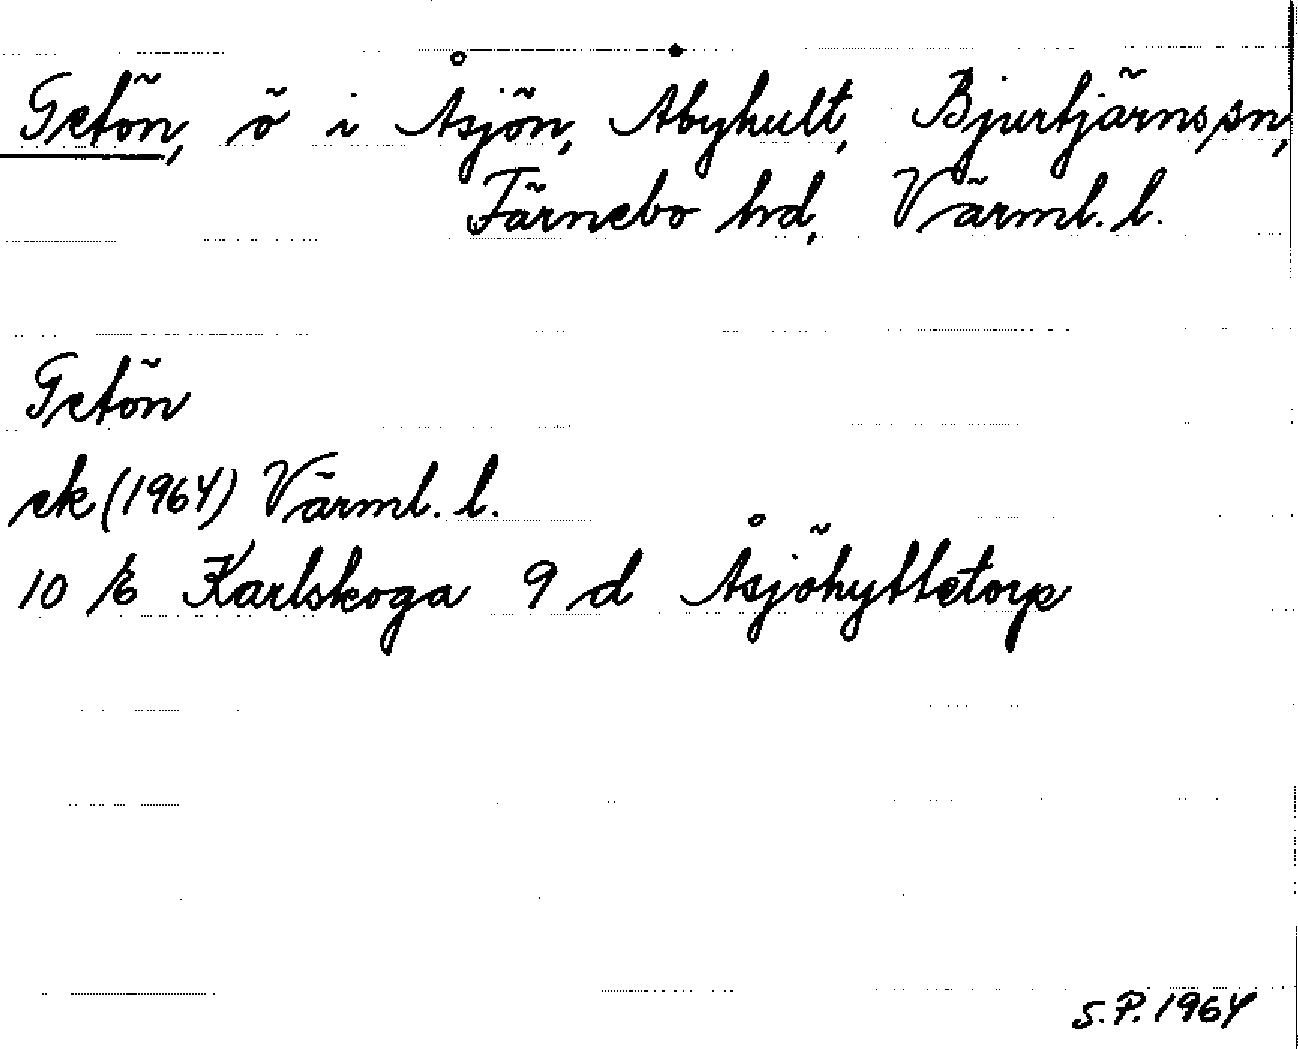 Getön, ö i Åsjön, Åbyhult, Bjurtjärns sn,
Färnebo hd, Värml. l.
Getön
ek (1964) Värml. l.
10 E Karlskoga 9 d Åsjöhyttetorp
S.P. 1964